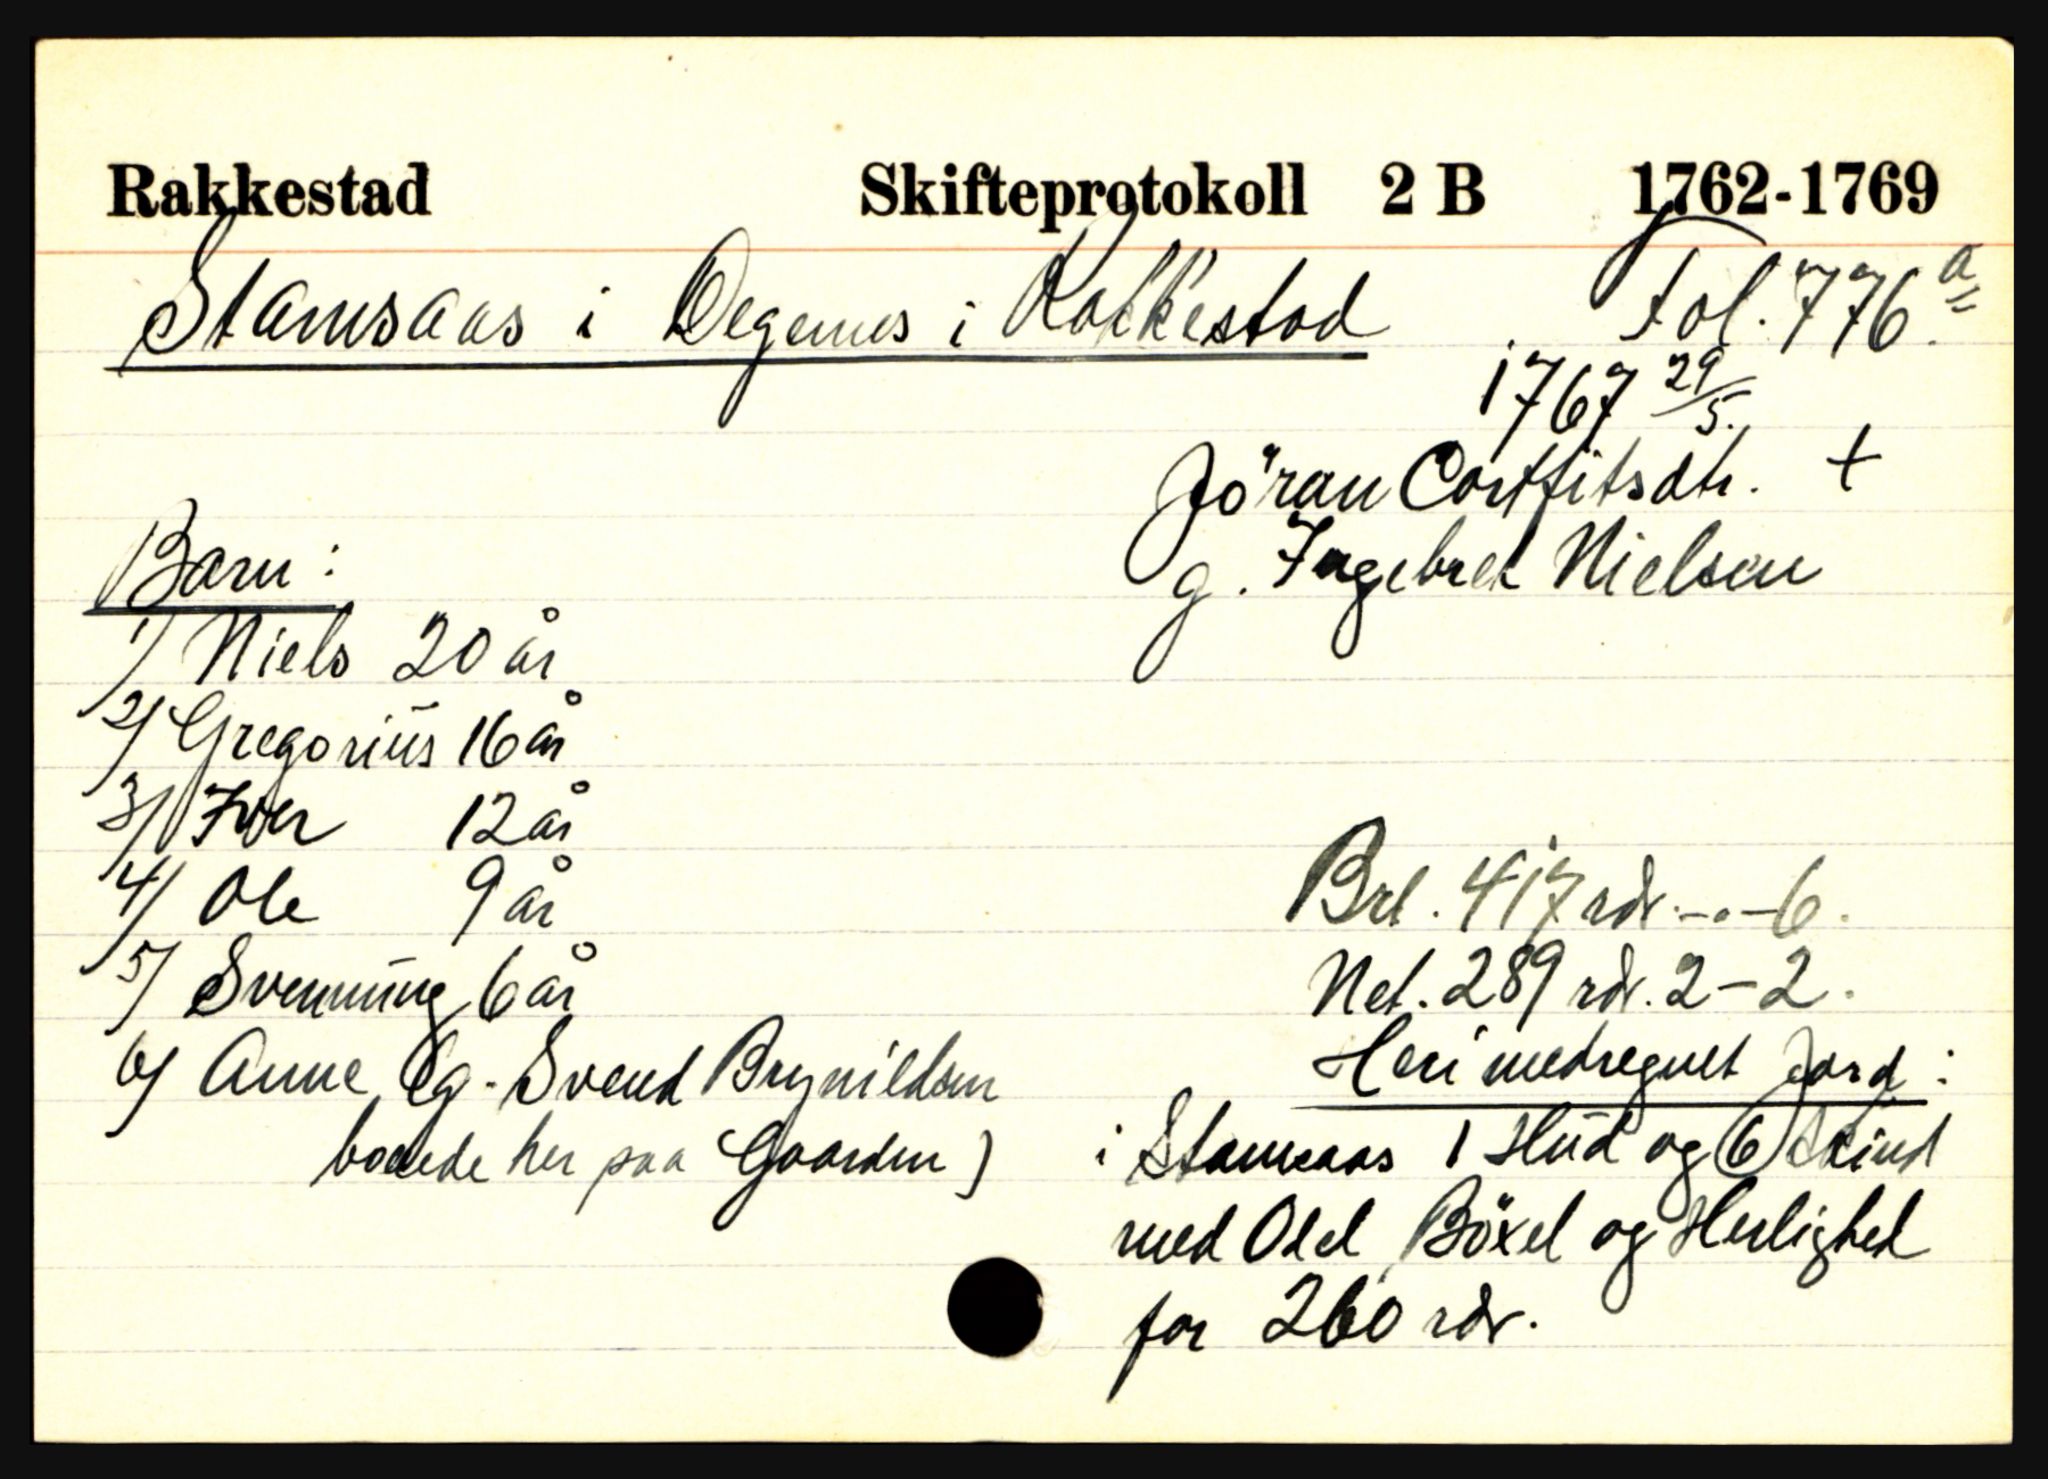 Rakkestad Skifteprotokoll 2 B 1762-1769
Stamsaas i Degernes i Rakkestad Fol. 776 a
1767 29/5.
Jöran Corfitsdtr. +
g. Ingebret Nielsen
Barn:
1) Niels 20 år
2) Gregorius 16 år
3) Iver 12 år
4) Ole 9 år
5) Svenning 6 år
6) Anne (g. Svend Brynildsen
boende her paa Gaarden)
Brt. 417 rdr. -.- 6.
Net. 289 rdr. 2 - 2.
Heri medregnet Jord:
i Stamsaas 1 Hud og 6 Skind
med Odel Böxel og Herlighed
for 260 rdr.